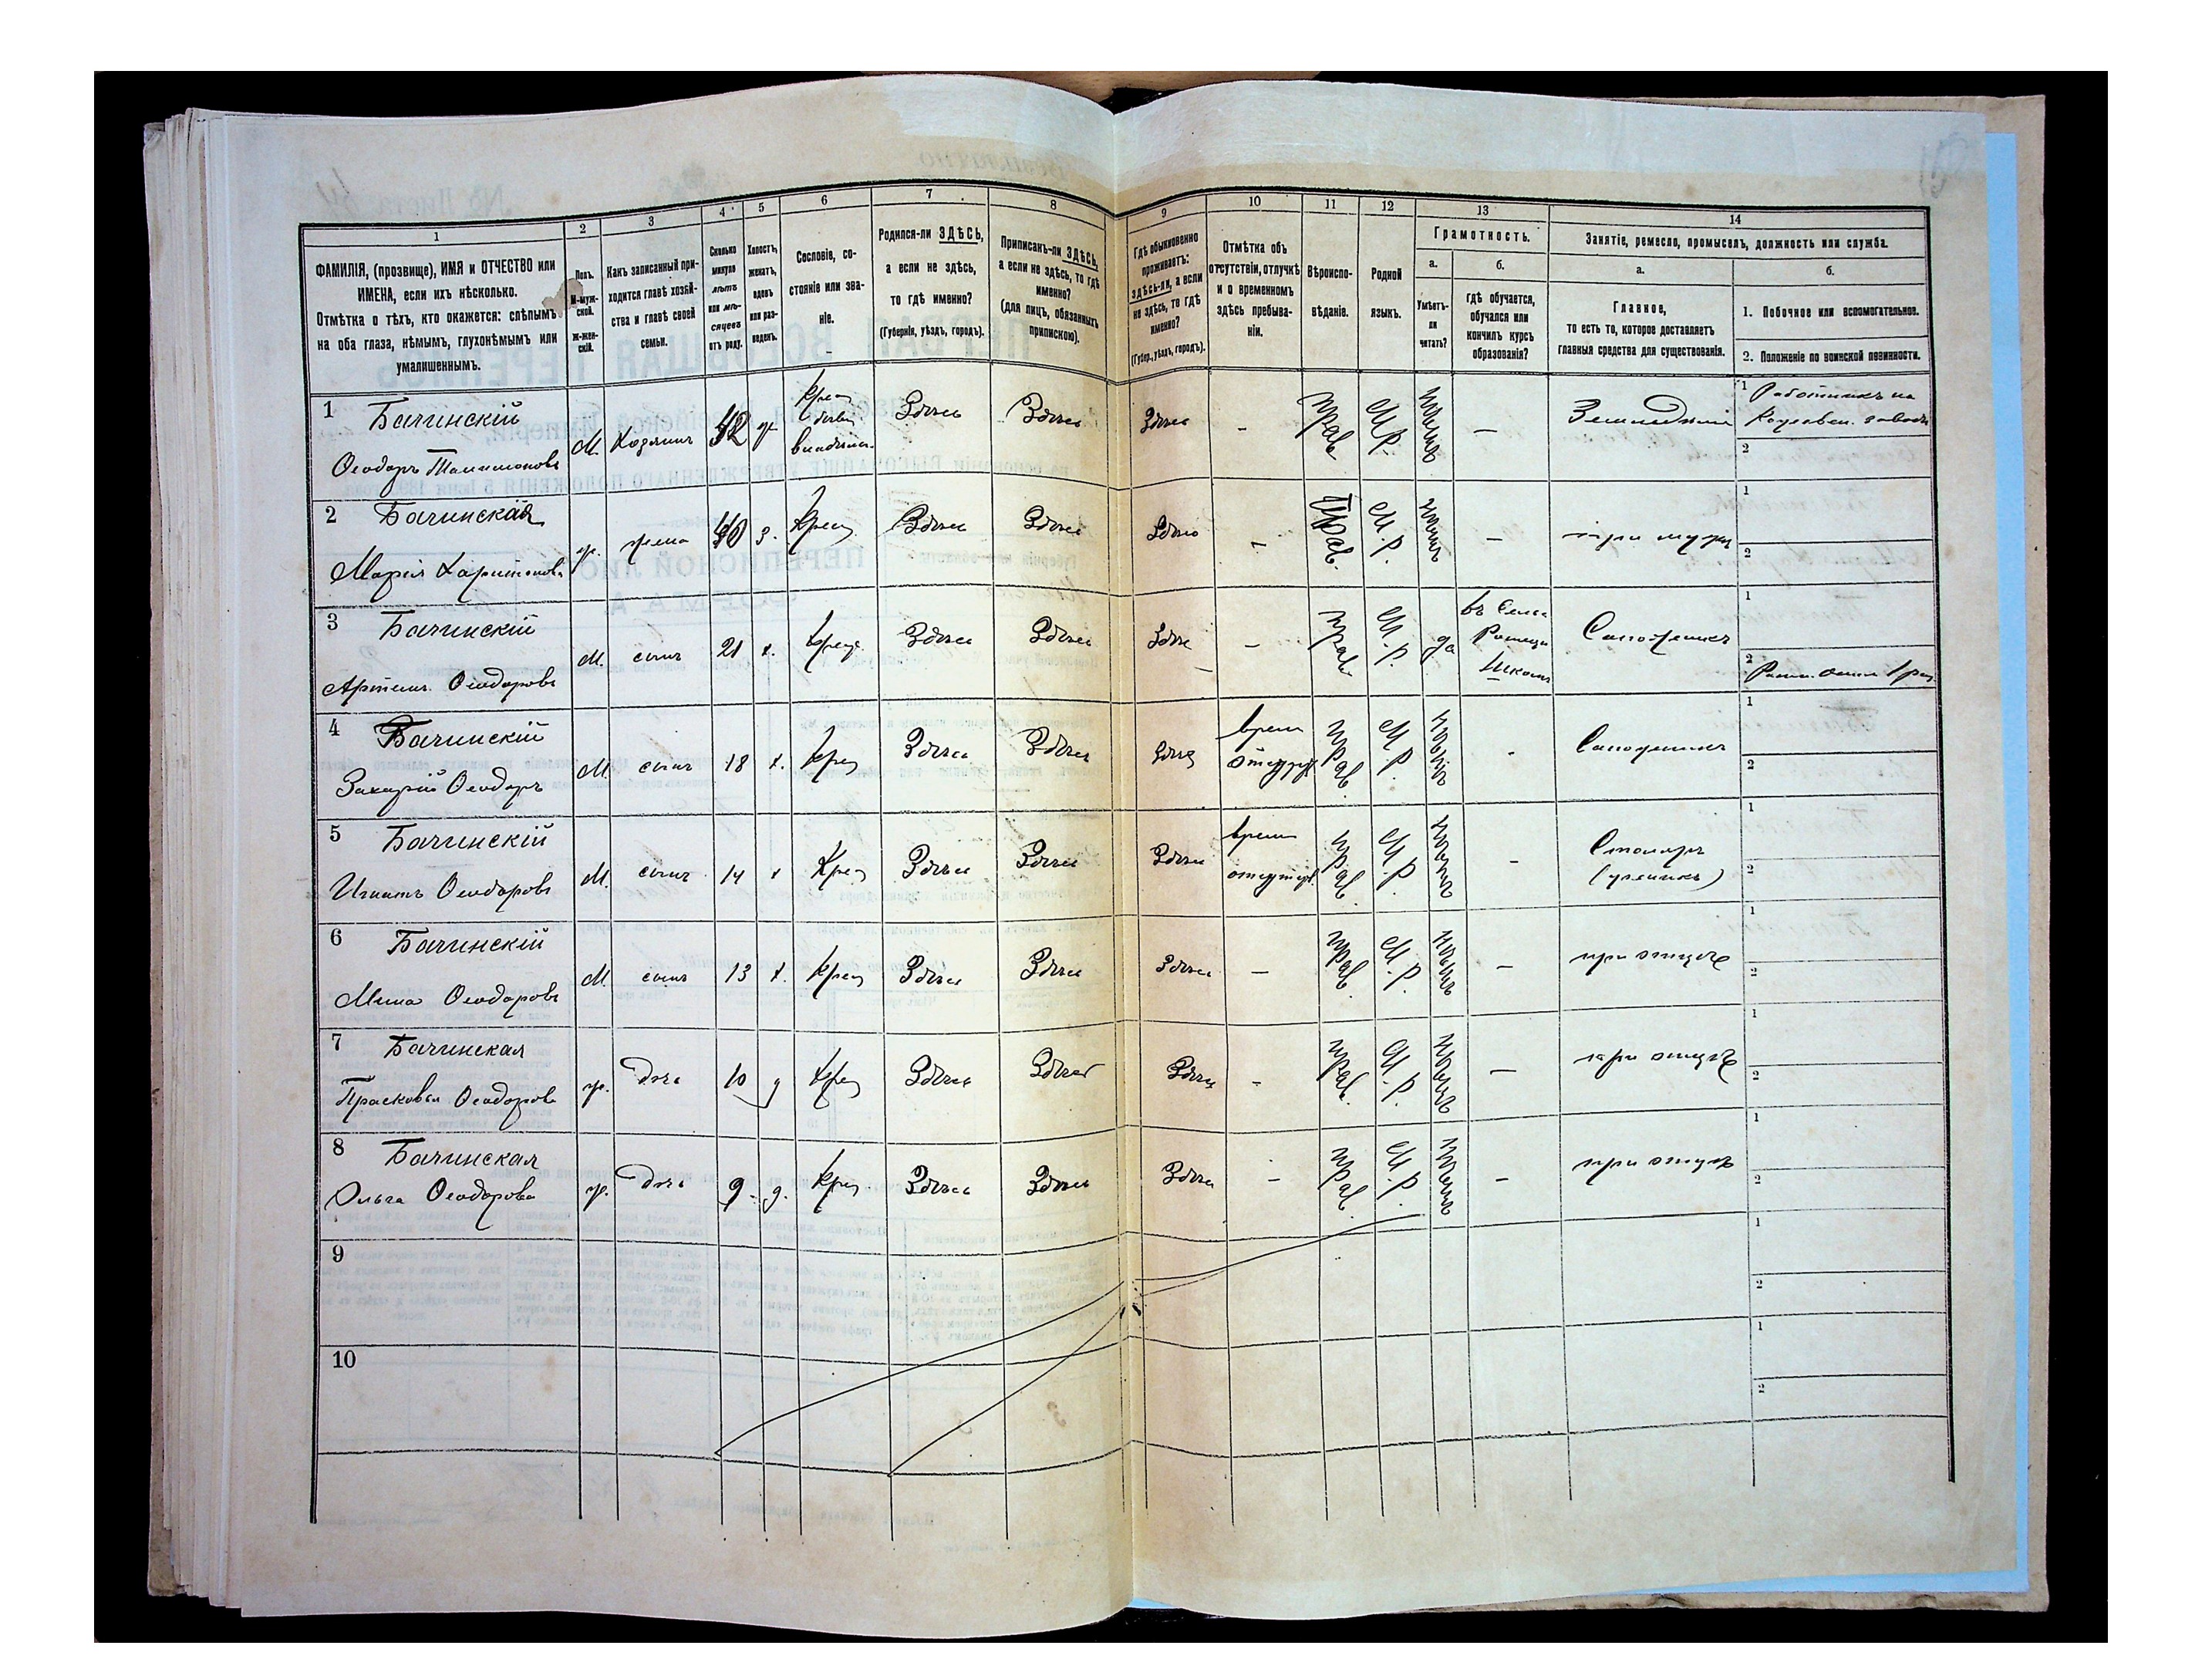 1
2
3
4
5
6
7
8
9
10
11
12
13
14
ФАМИЛІЯ, (прозвище), ИМЯ и ОТЧЕСТВО или
ИМЕНА, если ихъ нѣсколько.
Отмѣтка о тѣхъ, кто окажется: слѣпымъ
на оба глаза, нѣмымъ, глухонѣмымъ или
умалишеннымъ.
Полъ.
М-муж-
ской.
Ж-жен-
скій.
Какъ записанный при-
ходится главѣ хозяй-
ства и главѣ своей
семьи.
Сколько
минуло
лѣтъ
или мѣ-
сяцевъ
отъ роду.
Холостъ,
женатъ,
вдовъ
или раз-
веденъ.
Сословіе, со-
стояніе или зва-
ніе.
Родился-ли ЗДѢСЬ,
а если не здѣсь,
то гдѣ именно?
(Губернія, уѣздъ, городъ).
Приписанъ-ли ЗДѢСЬ,
а если не здѣсь, то гдѣ
именно?
(для лицъ, обязанныхъ
припискою).
Гдѣ обыкновенно
проживаетъ:
здѣсь-ли, а если
не здѣсь, то гдѣ
именно?
(Губер., уѣздъ, городъ).
Отмѣтка объ
отсутствіи, отлучкѣ
и о временномъ
здѣсь пребыва-
ніи.
Вѣроиспо-
вѣданіе.
Родной
языкъ.
Грамотность.
а.
Умѣетъ-
ли
читать?
б.
гдѣ обучается,
обучался или
кончилъ курсъ
образованія?
Занятіе, ремесло, промыселъ, должность или служба.
а.
Главное,
то есть то, которое доставляетъ
главныя средства для существованія.
б.
1. Побочное или вспомогательное.
2. Положеніе по воинской повинности.
1 Бачинскій
Ѳеодоръ М. Хозяинъ 42 ж Крес Здѣсь Здѣсь Здѣсь - прав. М.Р. - Земледѣліе
1 Работникъ на
2
2 Бачинская
Марія Харитонова ж. жена 40 з. Крес Здѣсь Здѣсь Здѣсь - Прав. М.Р. - при мужѣ
1
2
3 Бачинскій
Артемъ Ѳеодоровъ М. сынъ 21 х. Крес Здѣсь Здѣсь Здѣсь - прав. М.Р. да
въ
Школѣ
Сапожникъ
1
2
4 Бачинскій
Захарій Ѳеодоръ М. сынъ 18 х. Крес Здѣсь Здѣсь Здѣсь
врем
прав. М.Р. - Сапожникъ
1
2
5 Бачинскій
Игнатъ Ѳеодоровъ М. сынъ 14 х Крес Здѣсь Здѣсь Здѣсь
врем
прав. М.Р. -
Столяръ
(ученикъ)
1
2
6 Бачинскій
Мина Ѳеодоровъ М. сынъ 13 х. Крес Здѣсь Здѣсь Здѣсь - прав. М.Р. - при отцѣ
1
2
7 Бачинская
Прасковья Ѳеодорова ж. дочь 10 д Крес Здѣсь Здѣсь Здѣсь - прав. М.Р. - при отцѣ
1
2
8 Бачинская
Ольга Ѳеодорова ж. дочь 9 д. Крес Здѣсь Здѣсь Здѣсь - прав. М.Р. - при отцѣ
1
2
9
1
2
10
1
2